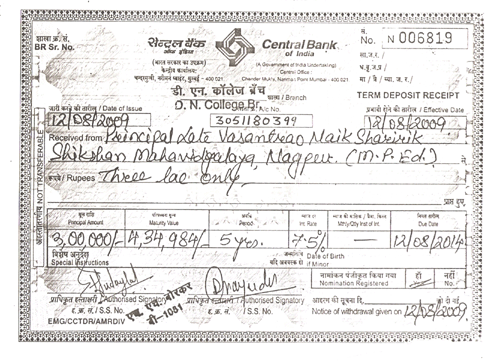 शाखा क्र.सं.
BR Sr. No.
सेन्ट्रल बैंक
ऑफ इंडिया
(भारत सरकार का उपक्रम)
केन्द्रीय कार्यालय:
चन्द्रमुखी, नरीमन पॉइंट, मुंबई - 400 021
Central Bank
of India
(A Government of India Undertaking)
Central Office :
Chander Mukhi, Nariman Point, Mumbai - 400 021
सं.
No.
N 006819
डी. एन. कॉलेज ब्रँच
शाखा / Branch
D. N. College Br.
TERM DEPOSIT RECEIPT
जारी करने की तारीख / Date of Issue
प्रभावी होने की तारीख / Effective
12/08/2009
3051180399
12/08/2009
Received from Principal Late Vasantrao Naik Sharirik
Shikshan Mahavidyalaya, Nagpur. (M.P.Ed.)
रुपये / Rupees Three lac only
प्राप्त हुए.
NOT TRANSFERABLE
Principal Amount
Maturity Value
Period
Int. Rate
Mthly/Qtly Inst of Int.
Due Date
3,00,000/- 4,34,984/- 5 yrs. 7.5% — 12/08/2014
विशेष अनुदेश
Special Instructions
Date of Birth
if Minor
नामांकन पंजीकृत किया गया
Nomination Registered
हाँ
नहीं
No.
प्राधिकृत हस्ताक्षरी / Authorised Signatory
ह. क्र. सं. / S.S. No.
एच. एच. बोरकर
बी-1051
प्राधिकृत हस्ताक्षरी / Authorised Signatory
ह. क्र. सं. / S.S. No.
आहरण की सूचना दि.
को दी गई
Notice of withdrawal given on 12/08/2009
EMG/CCTDR/AMRDIV